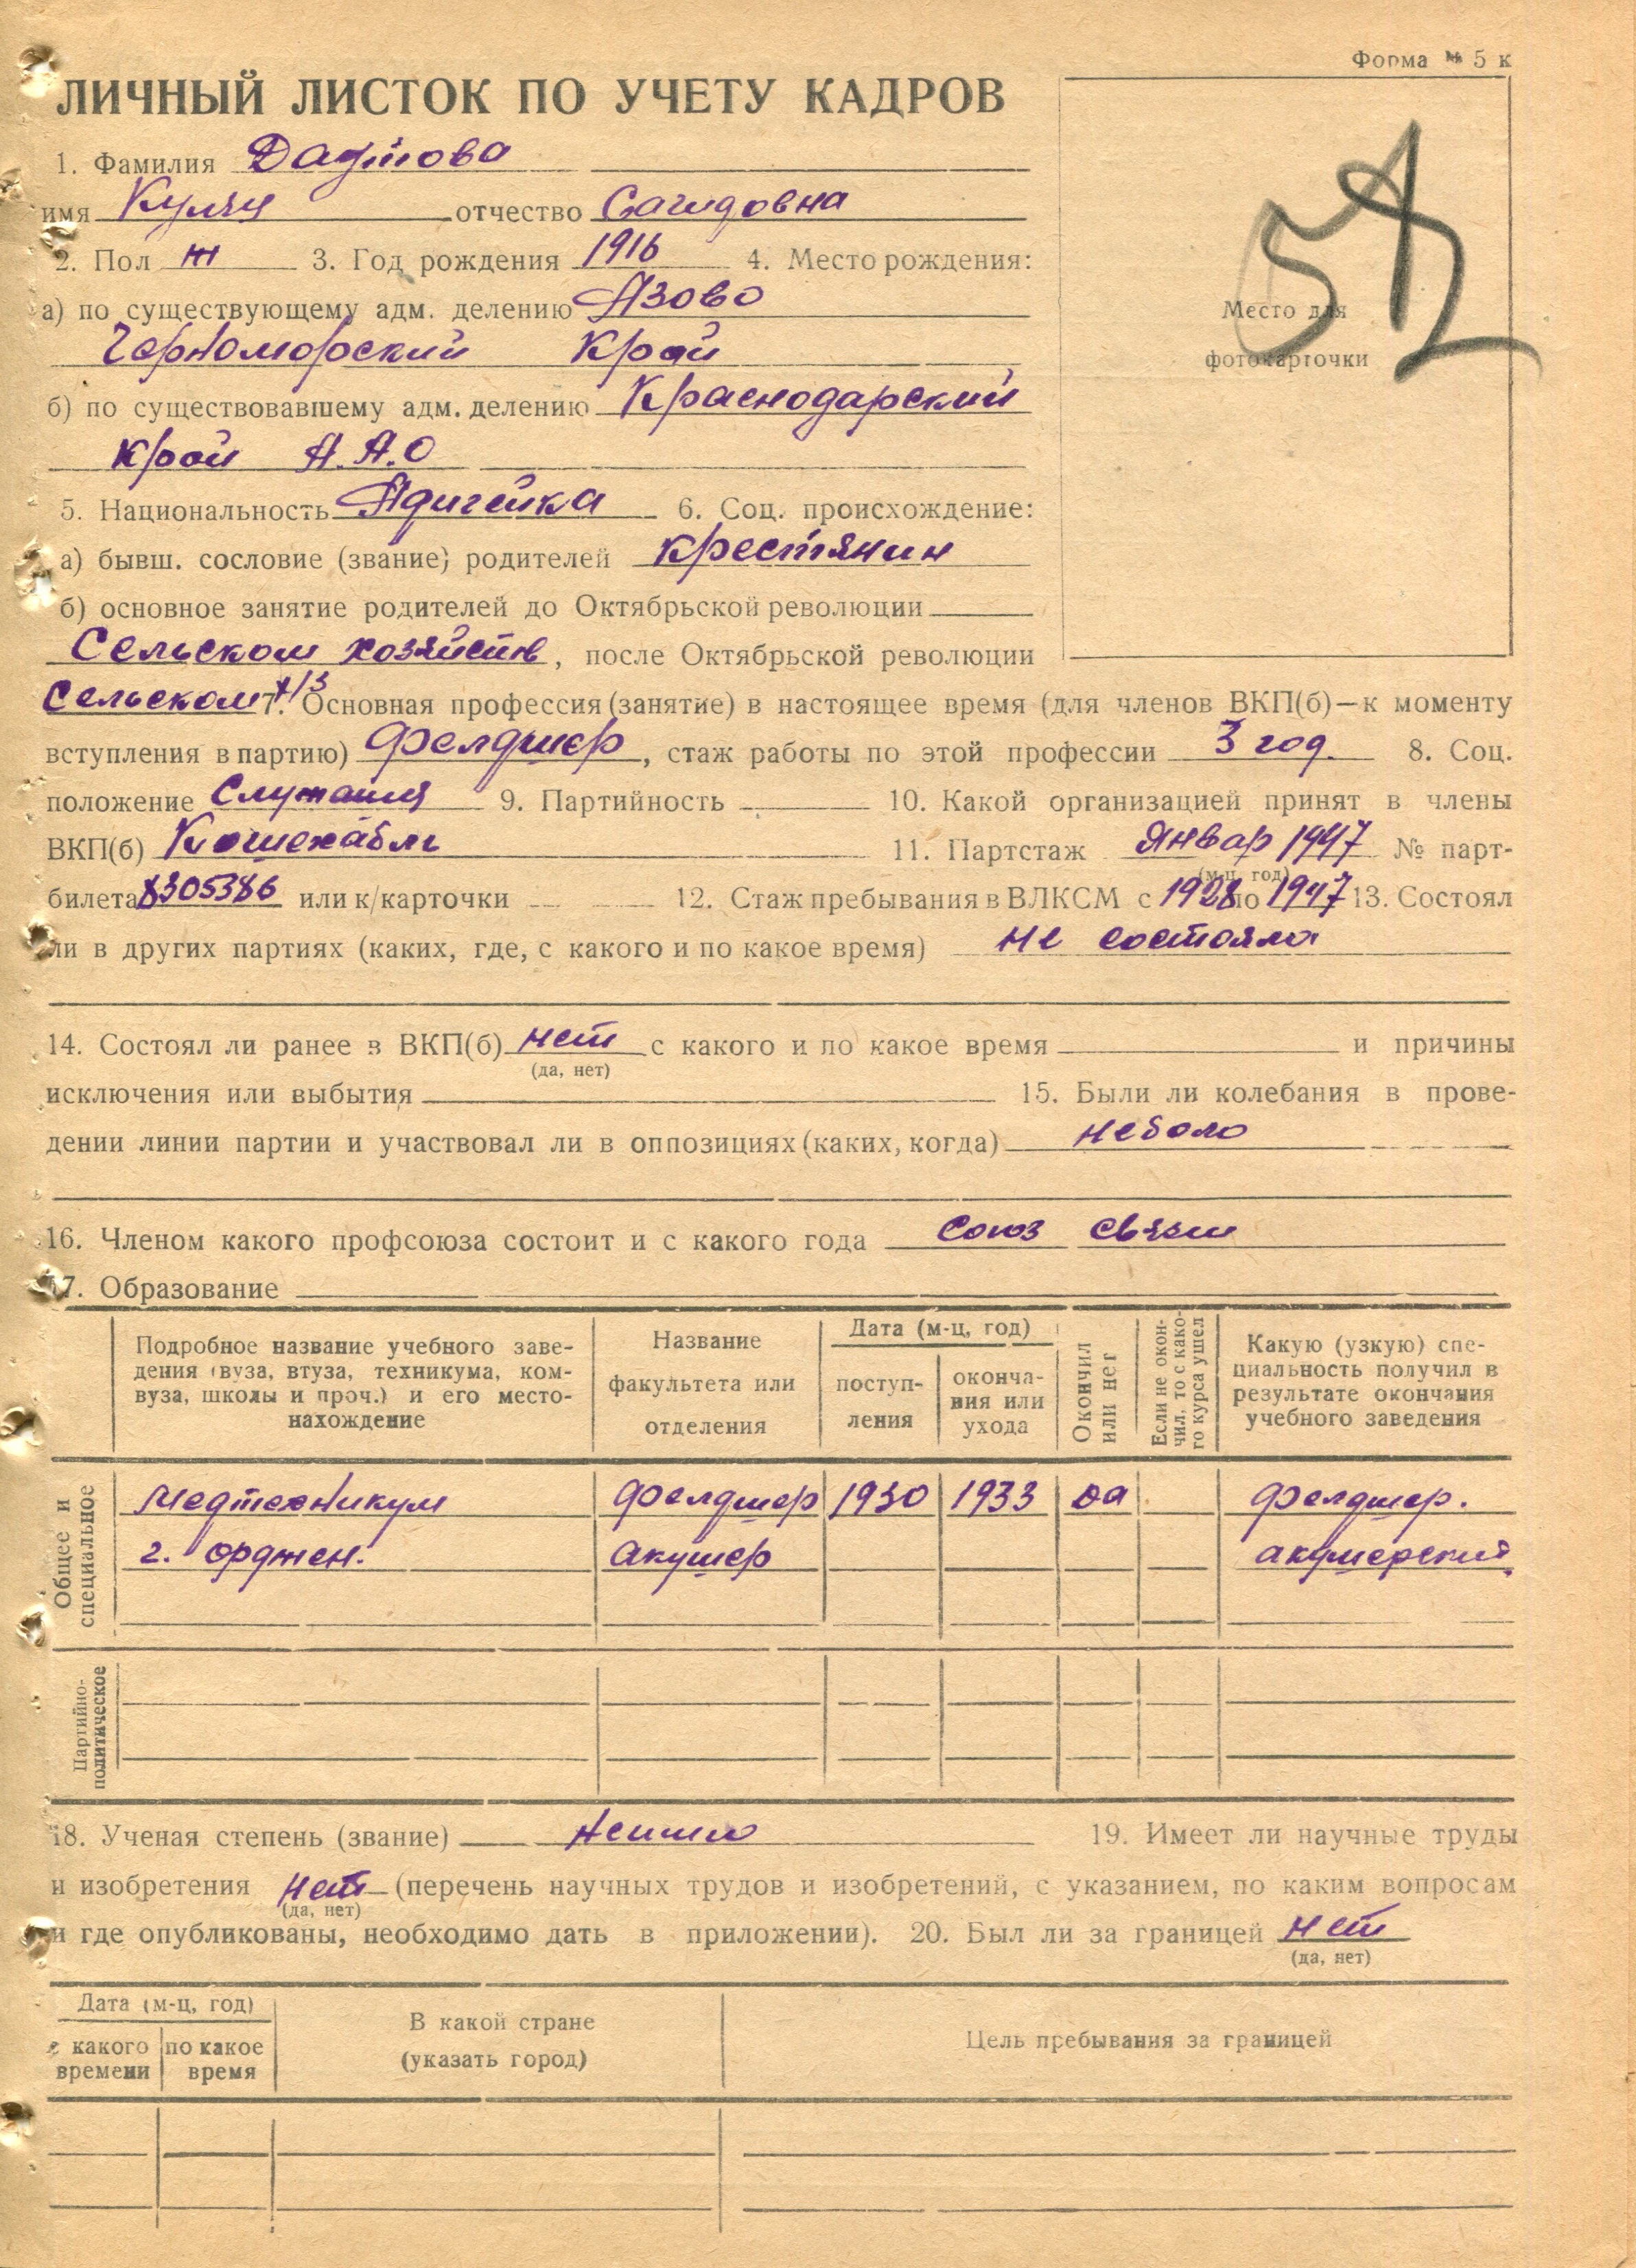 Форма № 5 к
ЛИЧНЫЙ ЛИСТОК ПО УЧЕТУ КАДРОВ
1. Фамилия
имя отчество Сагидовна
2. Пол ж 3. Год рождения 1916 4. Место рождения:
а) по существующему адм. делению Азово
Черноморский Край
б) по существовавшему адм. делению Краснодарский
край А.А.О
5. Национальность Адигейка 6. Соц. происхождение:
а) бывш. сословие (звание) родителей крестянин
б) основное занятие родителей до Октябрьской революции
Сельском хозяйств, после Октябрьской революции
Сельском х/з 7. Основная профессия (занятие) в настоящее время (для членов ВКП(б)—к моменту
вступления в партию) Фелдшер, стаж работы по этой профессии 3 год. 8. Соц.
положение 9. Партийность 10. Какой организацией принят в члены
ВКП(б) Кошехабль 11. Партстаж Январ 1947 № парт-
(м-ц, год)
билета 8305386 или к/карточки 12. Стаж пребывания в ВЛКСМ с 1928 по 1947 13. Состоял
ли в других партиях (каких, где, с какого и по какое время) не состояла
14. Состоял ли ранее в ВКП(б) нет с какого и по какое время и причины
(да, нет)
исключения или выбытия 15. Были ли колебания в прове-
дении линии партии и участвовал ли в оппозициях (каких, когда) неболо
16. Членом какого профсоюза состоит и с какого года Союз Связи
17. Образование
Подробное название учебного заве-
дения (вуза, втуза, техникума, ком-
вуза, школы и проч.) и его место-
нахождение
Название
факультета или
отделения
Дата (м-ц, год)
поступ-
ления
оконча-
ния или
ухода
Окончил
или нет
Если не окон-
чил, то с како-
го курса ушел
Какую (узкую) спе-
циальность получил в
результате окончания
учебного заведения
Общее и
специальное
Медтехникум Фелдшер 1930 1933 да Фелдшер.
г. орджен. Акушер акушерский
Партийно-
политическое
18. Ученая степень (звание) Неимею 19. Имеет ли научные труды
и изобретения нет (перечень научных трудов и изобретений, с указанием, по каким вопросам
(да, нет)
и где опубликованы, необходимо дать в приложении). 20. Был ли за границей нет
(да, нет)
Дата (м-ц, год)
с какого
времени
по какое
время
В какой стране
(указать город)
Цель пребывания за границей
Место для
фотокарточки
52